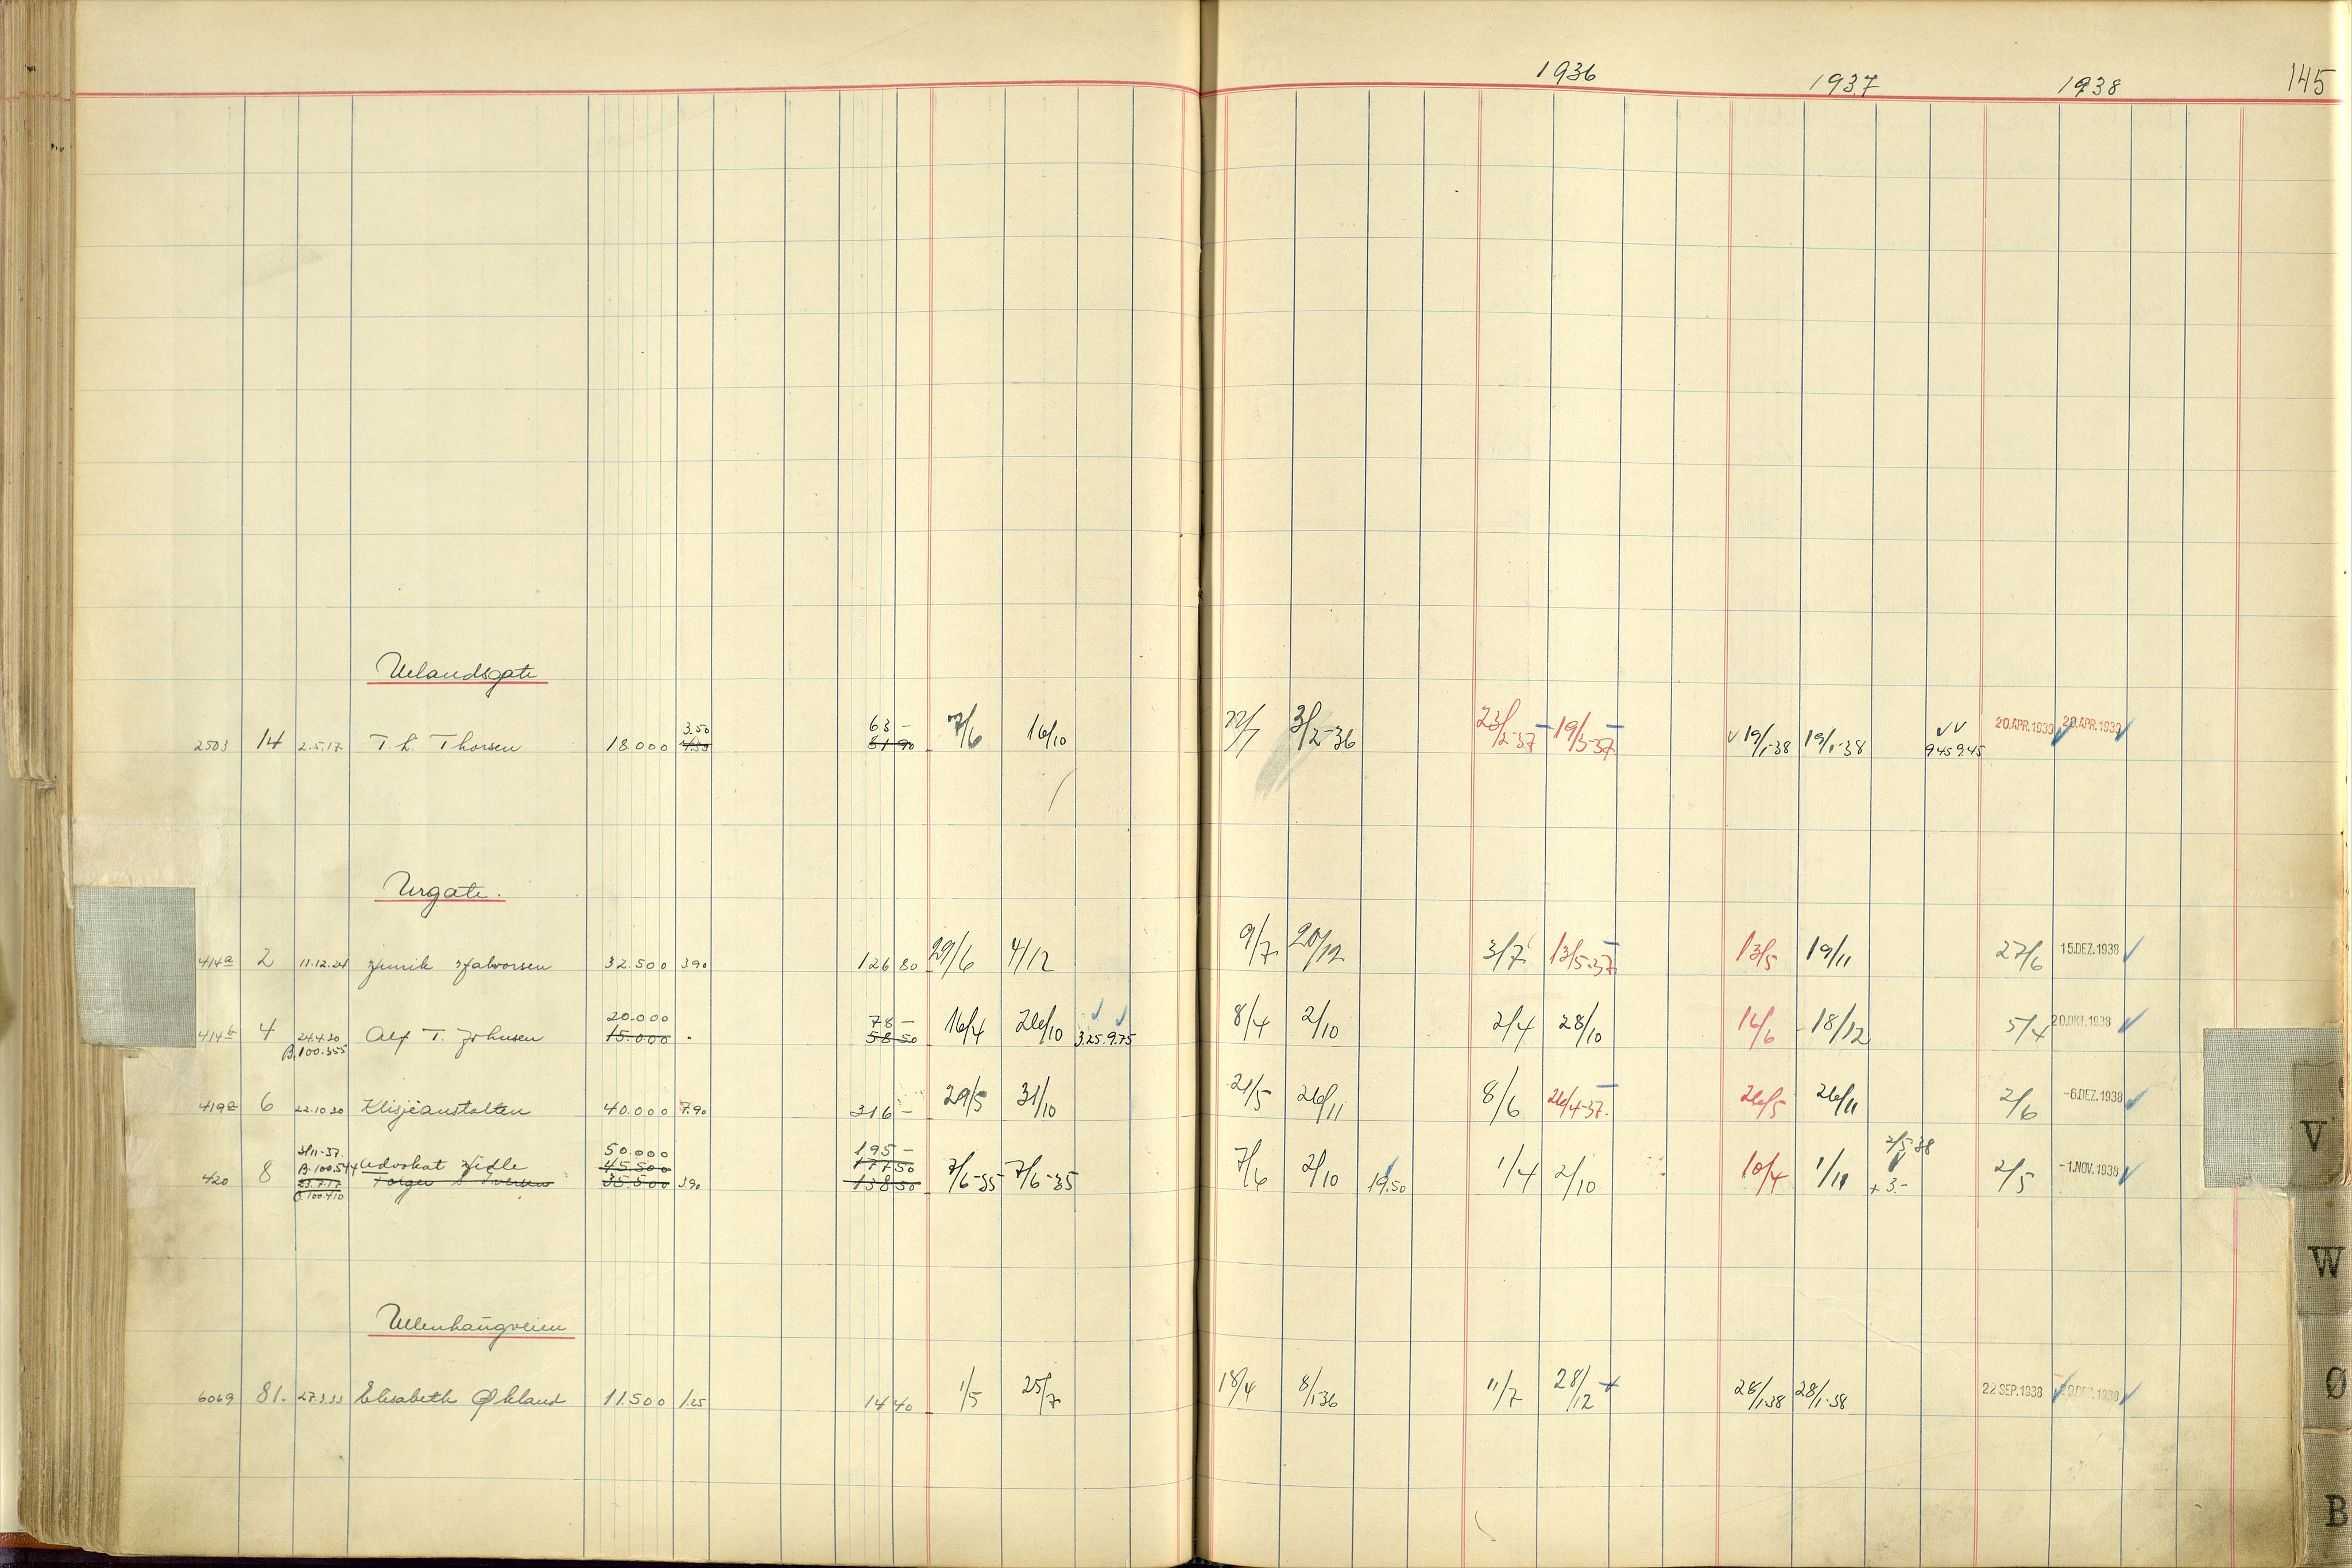 1936 1937 1938 145
Uelandsgate
3.50 63 –
2503 14 2.5.17 T. L. Thorsen 18000 4.55 81 90 7/6 16/10 3/2-36 23/2-37 – 19/3-37 – √ 19/1-38 19/1-38 √ √ 9.45 9.45 20.APR.1939 20.APR.1939
Urgate.
414a 2 11.12.24 Henrik Halvorsen 32.500 3.90 126 80 29/6 4/12 9/7 20/12 3/7 13/5-37 – 13/5 19/11 27/6 15.DEZ.1938 √
20.000 78 – √ √
414b 4 24.4.30 Alf T. Johnsen 15.000 58 50 16/4 26/10 3.25 9.75 8/4 2/10 2/4 28/10 16/6 18/12 5/4 20.OKT.1938 √
B.100.355
419a 6 22.10.30 Klisjéanstalten 40.000 7.90 316 – 29/5 31/10 21/5 26/11 8/6 26/4-37. – 26/5 26/11 2/6 -6.DEZ.1938 √
3/11-37. 50.000 195 – 2/5-38
B.100.544 Advokat Hidle 45.500 177 50 √
420 8 23.7.17 Torger S Iversen 35.500 3.90 138 50 7/6-35 7/6-35 7/6 2/10 19.50 1/4 2/10 10/4 1/11 + 3.- 2/5 -1.NOV.1938 √
B.100.410
Ullenhaugveien
6069 81. 27.3.33 Elisabeth Økland 11.500 1.25 14 40 1/5 25/7 18/4 8/1-36 11/7 28/12 + 28/1-38 28/1-38 22.SEP.1938 √ DEZ.1938 √
V
W
Ø
B